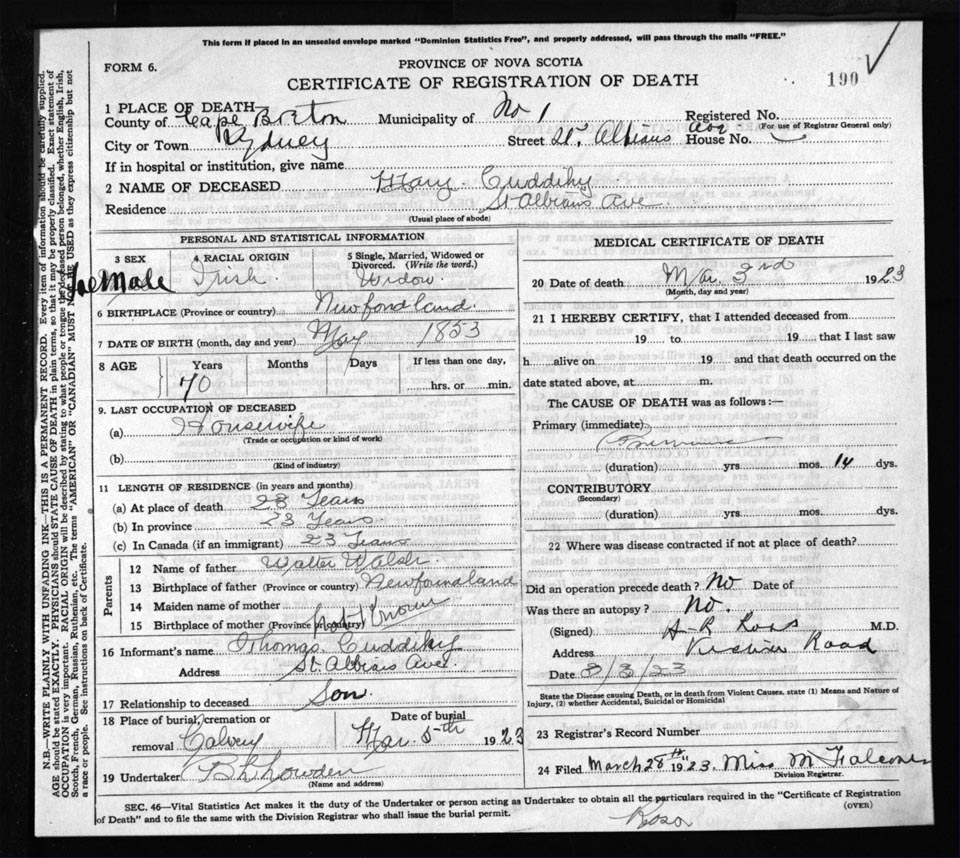 This form if placed in an unsealed envelope marked "Dominion Statistics Free", and properly addressed, will pass through the mails "FREE."
FORM 6.
PROVINCE OF NOVA SCOTIA
CERTIFICATE OF REGISTRATION OF DEATH
190
1 PLACE OF DEATH
County of Cape Breton Municipality of No 1 Registered No.
(For use of Registrar General only)
City or Town Sydney Street St. Albians Ave House No.
If in hospital or institution, give name
2 NAME OF DECEASED Mary Cuddihy
Residence St Albians Ave
(Usual place of abode)
PERSONAL AND STATISTICAL INFORMATION
3 SEX 4 RACIAL ORIGIN 5 Single, Married, Widowed or Divorced. (Write the word.)
Female Irish Widow
6 BIRTHPLACE (Province or country) Newfondland.
7 DATE OF BIRTH (month, day and year) May 1853
8 AGE Years Months Days If less than one day,
70 hrs. or min.
9. LAST OCCUPATION OF DECEASED
(a) Housewife
(Trade or occupation or kind of work)
(b)
(Kind of industry)
11 LENGTH OF RESIDENCE (in years and months)
(a) At place of death 23 Years
(b) In province 23 Years.
(c) In Canada (if an immigrant) 23 Years
Parents
12 Name of father Walter Walsh
13 Birthplace of father (Province or country) Newfoundland
14 Maiden name of mother
15 Birthplace of mother (Province or country) Not Known
16 Informant's name Thomas Cuddihy
Address St. Albians Ave.
17 Relationship to deceased Son.
18 Place of burial, cremation or removal Calvery Date of burial Mar. 5th 1923
19 Undertaker
(Name and address)
MEDICAL CERTIFICATE OF DEATH
20 Date of death Mar 3rd 1923
(Month, day and year)
21 I HEREBY CERTIFY, that I attended deceased from
19 to 19 that I last saw
h alive on 19 and that death occurred on the
date stated above, at m.
The CAUSE OF DEATH was as follows:—
Primary (immediate)
(duration) yrs. mos. 14 dys.
CONTRIBUTORY
(Secondary)
(duration) yrs. mos. dys.
22 Where was disease contracted if not at place of death?
Did an operation precede death? No Date of
Was there an autopsy? No.
(Signed) A-R Ross M.D.
Address Road
Date 8/3/23
State the Disease causing Death, or in death from Violent Causes, state (1) Means and Nature of
Injury, (2) whether Accidental, Suicidal or Homicidal
23 Registrar's Record Number
24 Filed March 28th 1923. Miss M Falconer
Division Registrar.
SEC. 46—Vital Statistics Act makes it the duty of the Undertaker or person acting as Undertaker to obtain all the particulars required in the "Certificate of Registration
(OVER)
of Death" and to file the same with the Division Registrar who shall issue the burial permit.
N.B.—WRITE PLAINLY WITH UNFADING INK—THIS IS A PERMANENT RECORD. Every item of information should be carefully supplied.
AGE should be stated EXACTLY. PHYSICIANS should STATE CAUSE OF DEATH in plain terms, so that it may be properly classified. Exact statement of
OCCUPATION is very important. RACIAL ORIGIN will be described by stating to what people or tongue the deceased person belonged, whether English, Irish,
Scotch, French, German, Russian, Ruthenian, etc. The terms "AMERICAN" or "CANADIAN" MUST NOT BE USED as they express citizenship but not
a race or people. See instructions on back of Certificate.